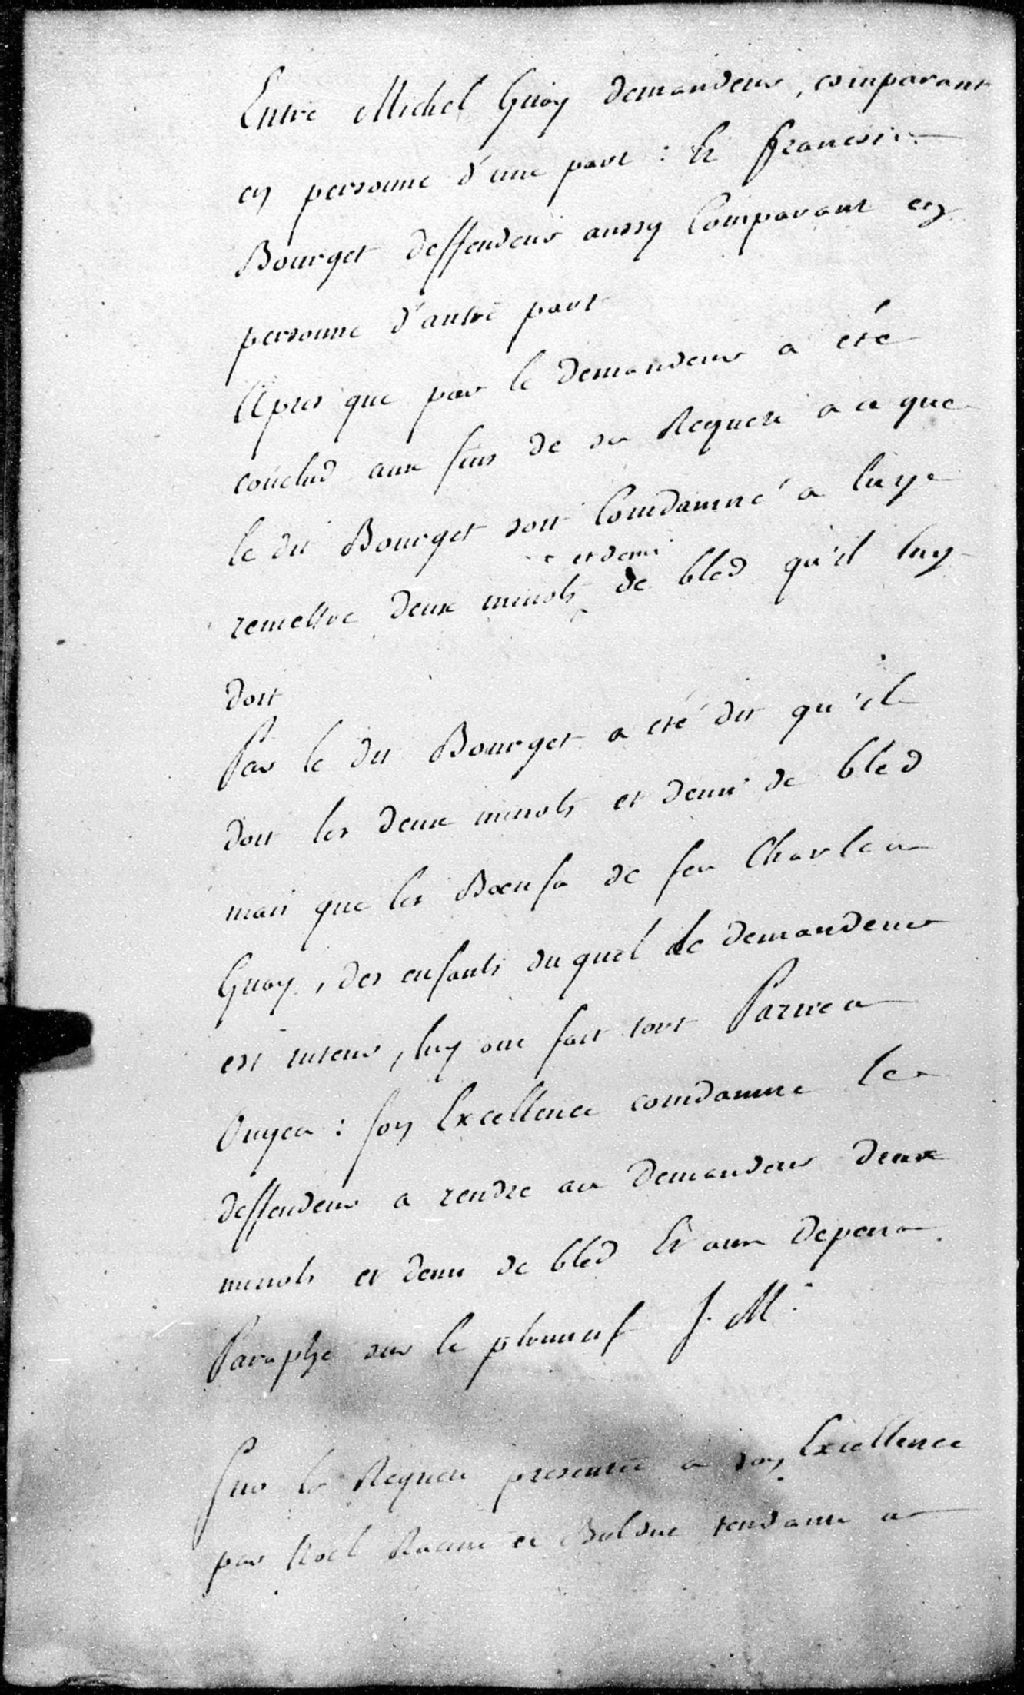 Entre Michel Guay demandeur, comparant
en personne d'une part : Et francois
Bourget deffendeur aussy Comparant en
personne d'autre part
Apres que par le demandeur a été
conclud aux fins de sa Requete a ce que
le dit Bourget soit Condamné a luy
remettre deux minots et demi de bled qu'il luy
doit
Par le dit Bourget a eté dit qu'il
doit les deux minots et demi de bled
mais que les Boeufs de feu Charles
Guay, des enfants duquel le demandeur
est tuteur, luy ont fait tort Parties
Ouyes : Son Excellence condamne le
deffendeur a rendre au demandeur deux
minots et demi de bled Et aux depens
Paraphé sur le plumitif J. M.
Sur la Requete presentée a son Excellence
par Noel Racine de tendante a